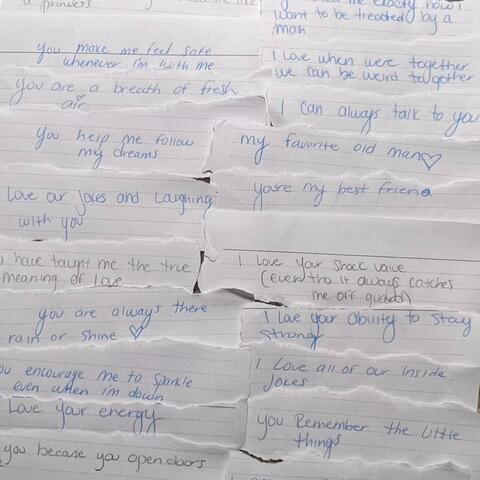 princess
you make me feel safe
whenever im with me
you are a breath of fresh
air
you help me follow
my dreams
Love our jokes and laughing
with you
have taught me the true
meaning of love
you are always there
rain or shine ♡
encourage me to sparkle
even when im down
Love your energy
you because you open doors
me exactly how
want to be treated by a
man
I Love when were together
we can be weird together
I can always talk to you
my favorite old man♡
youre my best friend
I Love your shock value
(even tho it always catches
me off guard)
I Love your ability to stay
strong
I Love all of our inside
jokes
you Remember the little
things